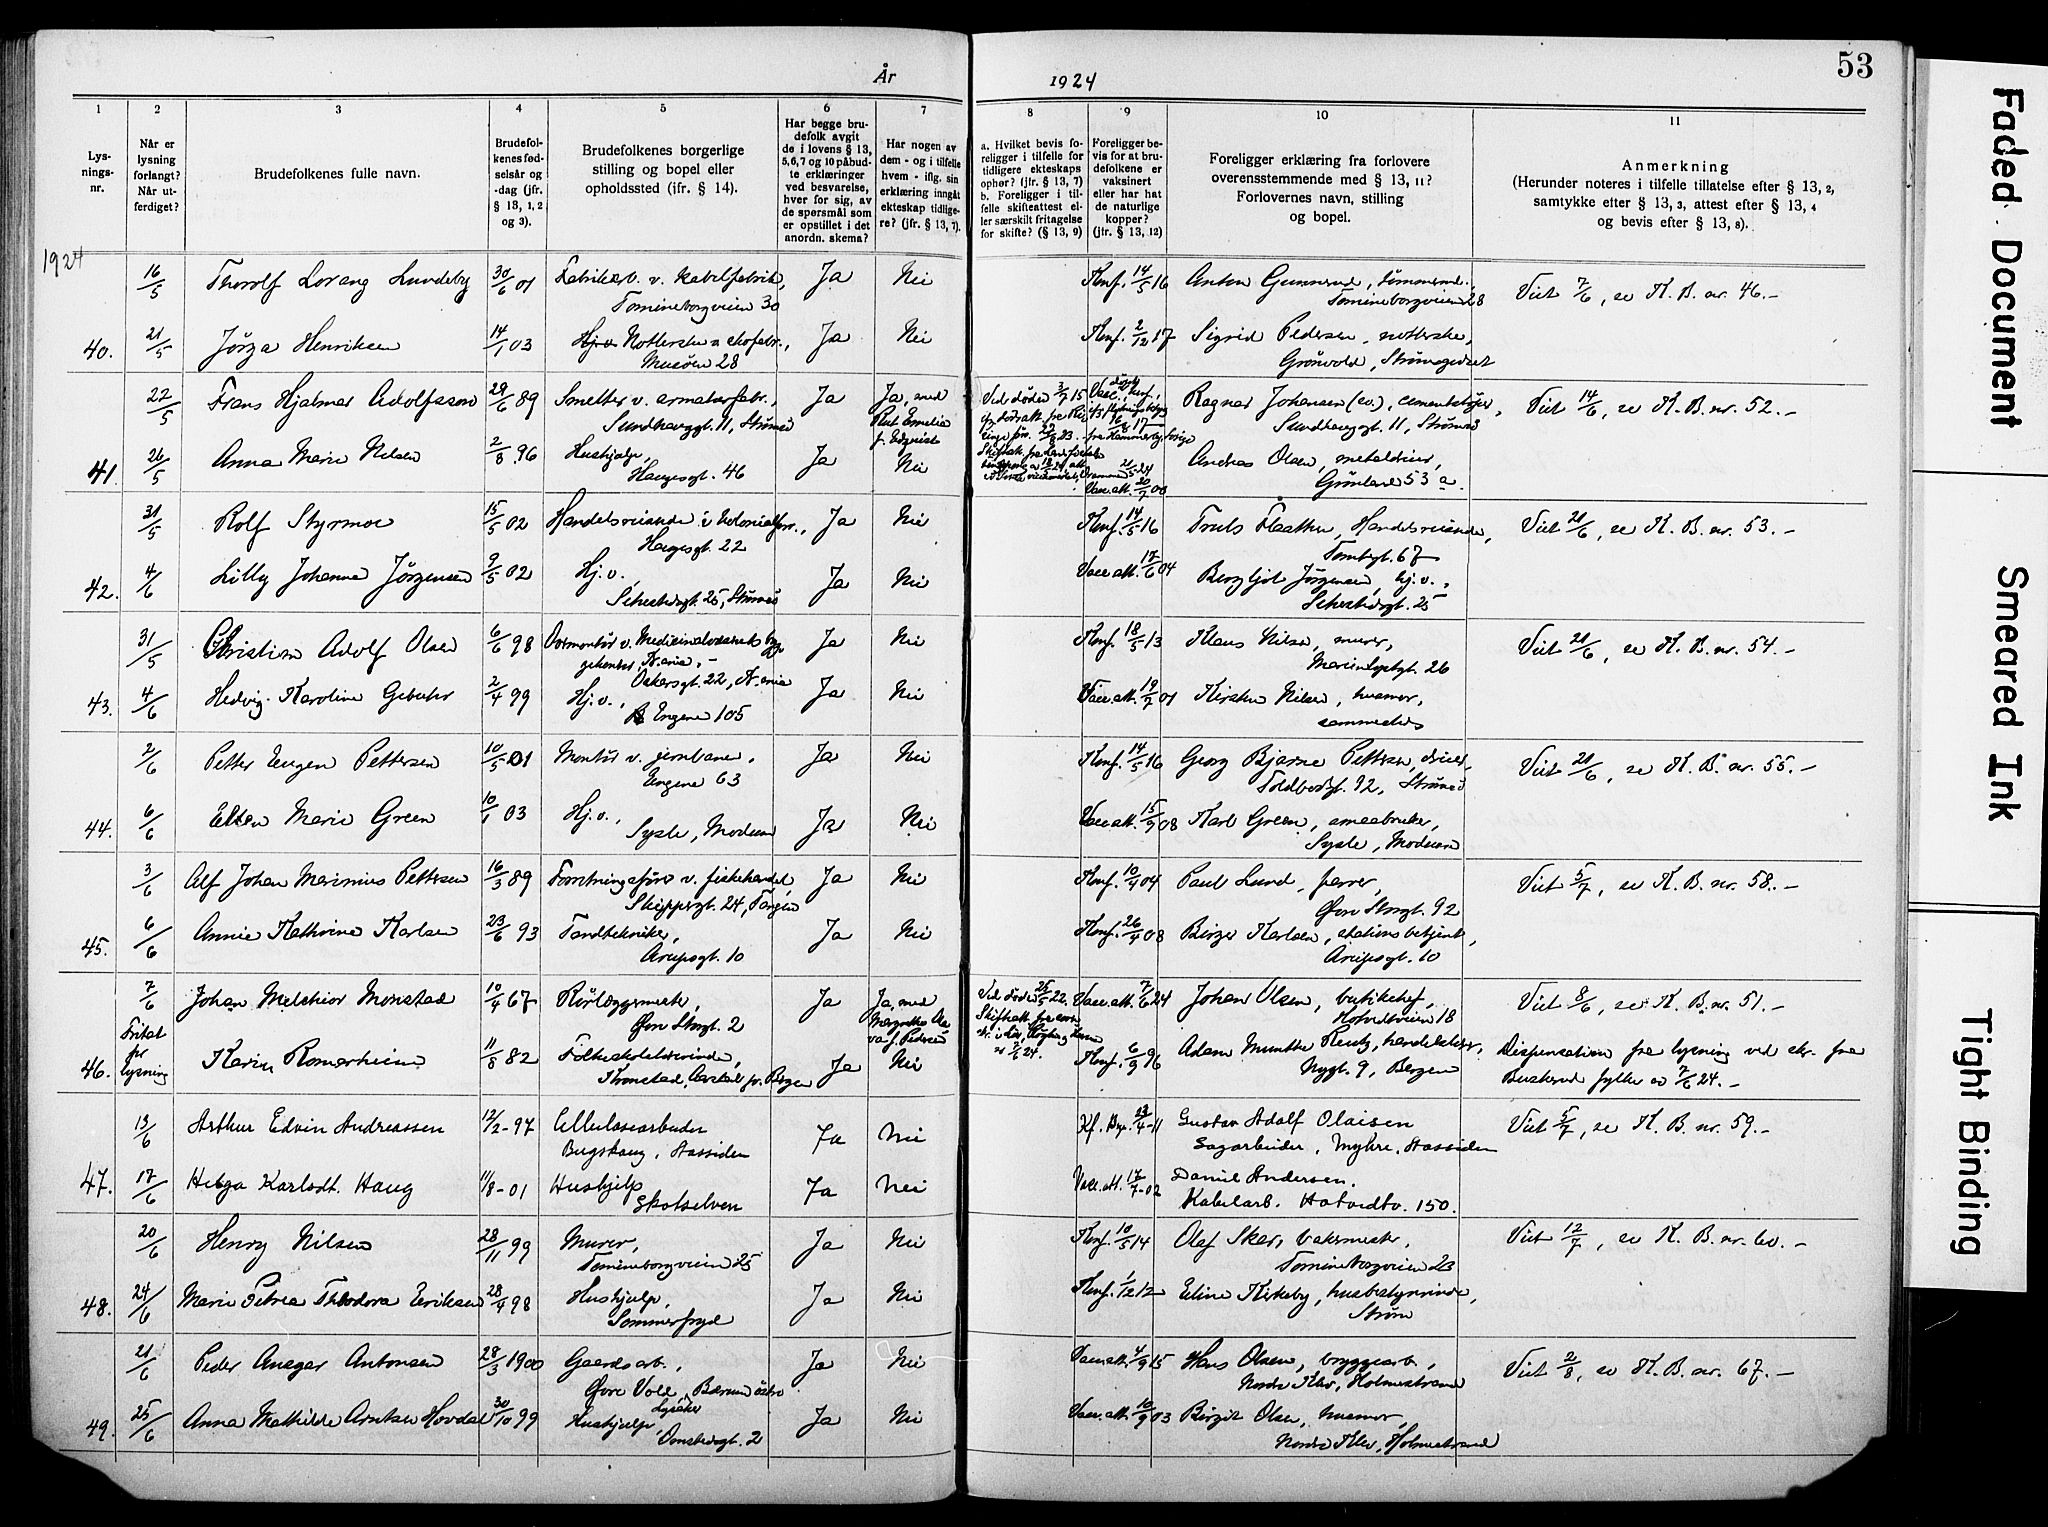 53
År
1924
1
2
3
4
5
6
7
8
9
10
11
Lysningsnr.
Når er lysning forlangt? Når utferdiget?
Brudefolkenes fulle navn.
Brudefolkenes fødselsår og -dag (jfr. § 13, 1, 2 og 3).
Brudefolkenes borgerlige stilling og bopel eller opholdssted (jfr. § 14).
Har begge brudefolk avgit de i lovens § 13, 5, 6, 7 og 10 påbudte erklæringer ved besvarelse, hver for sig, av de spørsmål som er opstillet i det anordn. skema?
Har nogen av dem - og i tilfelle hvem - iflg. sin erklæring inngåt ekteskap tidligere? (jfr. § 13, 7).
a. Hvilket bevis foreligger i tilfelle for tidligere ekteskaps ophør? (jfr. § 13, 7)
b. Foreligger i tilfelle skifteattest eller særskilt fritagelse for skifte? (§ 13, 9)
Foreligger bevis for at brudefolkene er vaksinert eller har hat de naturlige kopper? (jfr. § 13, 12)
Foreligger erklæring fra forlovere overensstemmende med § 13, 11? Forlovernes navn, stilling og bopel.
Anmerkning
(Herunder noteres i tilfelle tillatelse efter § 13, 2, samtykke efter § 13, 3, attest efter § 13, 4 og bevis efter § 13, 8).
1924
16/5 Thorolf Lorang Lundeby 30/6 01 Fabrikarb. v. kabelfabrik, Tomineborgveien 30 Ja Nei Konf. 14/5 16 Anton Gunnerud, tømmerm., Tomineborgveien 28 Viet 7/6, se K. B. nr. 46.-
40. 21/5 Jørga Henriksen 14/1 03 Notterske, Musøen 28 Ja Nei Konf. 2/12 17 Sigrid Pedersen, notterske, Grönvold, Strømsgodset
22/5 Frans Hjalmar Adolfsson 29/6 89 Smelter v. armaturfabr., Sundhauggt. 11, Strømsö Ja Ja, med Rut Emelia f. Edquist Ved döden 3/7 15 Ragnar Johansen (ev.), cementstöper, Sundhauggt. 11, Strømsö Viet 14/6, se K. B. nr. 52.-
41. 26/5 Anna Marie Nilsen 2/8 96 Hushjelp, Haugesgt. 46 Ja Nei Vacc. att. 20/7 00 Andreas Olsen, metaldreier, Grönland 53 a.
31/5 Rolf Styrmoe 15/5 02 Handelsreisende i kolonialforr., Haugesgt. 22 Ja Nei Konf. 14/5 16 Truls Flaatten, Handelsreisende, Tomtegt. 67 Viet 21/6, se K. B. nr. 53.-
42. 4/6 Lilly Johanne Jørgensen 9/5 02 Hj. v., Schestedsgt. 25, Strømsö Ja Nei Vacc. att. 17/6 04 Bergljot Jørgensen, hj. v., Schestedsgt. 25
31/5 Christian Adolf Olsen 6/6 98 Ovsersgt. 22, Kr.ania Ja Nei Konf. 18/5 13 Klaus Nilsen, murer, Marienlystgt. 26 Viet 21/6, se K. B. nr. 54.-
43. 4/6 Hedvig Karoline Gebuhr 2/4 99 Hj. v., Engene 105 Ja Nei Vacc. att. 19/7 01 Kirsten Nilsen, husmor, sammesteds
2/6 Petter Eugen Pettersen 10/5 01 Montör v. jernbanen, Engene 63 Ja Nei Konf. 14/5 16 Georg Bjarne Pettersen, dreier, Toldbodgt. 92, Strømsö Viet 21/6, se K. B. nr. 55.-
44. 6/6 Ellen Marie Green 10/1 03 Hj. v., Sysle, Modum Ja Nei Vacc. att. 15/9 08 Karl Green, smaabruker, Sysle, Modum
3/6 Alf Johan Marinius Pettersen 16/3 89 Forretningsfører v. fiskehandel, Skippergt. 24, Tangen Ja Nei Konf. 10/4 04 Paul Lund, farver, Øvre Storgt. 92 Viet 5/7, se K. B. nr. 58.-
45. 6/6 Annie Kathrine Karlsen 23/6 93 Tandtekniker, Arupsgt. 10 Ja Nei Konf. 26/4 08 Birger Karlsen, stationsbetjent, Arupsgt. 10
7/6 Johan Melchior Monstad 10/4 67 Rörlæggermester, Øvre Storgt. 2 Ja Ja, med Margrethe f. Pedersen Ved döden 25/5 22. Vacc. att. 7/6 24 Johan Olsen, butikchef, Hotvedtveien 18 Viet 8/6, se K. B. nr. 51.-
46. Fritat for lysning Karin Romarheim 11/8 82 Folkeskolelærerinde, Kronstad, Aarstad pr. Bergen Ja Nei Konf. 6/9 96 Adam Munthe Reutz, handelsbestr., Nygt. 9, Bergen Dispensation fra lysning ved skr. fra Buskerud fylke av 7/6 24.-
13/6 Arthur Edvin Andreassen 12/2-97 Cellulosearbeider Bugskaug, Aassiden Ja Nei Kf. By. 23/4-11 Gustav Adolf Olaisen Sagarbeider, Myhre, Aassiden Viet 5/7, se K. B. nr. 59.-
47. 17/6 Helga Karlsdt. Haug 11/8-01 Hushjelp Skotselven Ja Nei Vacc. att. 17/7-02 Daniel Andersen. Kabelarb. Hotvedtv. 150.
20/6 Henry Nilsen 28/11 99 Murer, Tomineborgveien 25 Ja Nei Konf. 10/5 14 Olaf Skar, bakermester, Tomineborgveien 23 Viet 12/7, se K. B. nr. 60.-
48. 24/6 Marie Petrea Theodora Eriksen 28/4 98 Hushjelp, Sommerfryd Ja Nei Konf. 1/12 12 Eline Kirkeby, husbestyrerinde, Strøm
21/6 Peder Ansgar Antonsen 28/3 1900 Gaardsarb., Øvre Voll, Bærum östre Lysaker Ja Nei Vacc. att. 4/9 15 Hans Olsen, bryggearb., Nordre Klev, Holmestrand Viet 2/8, se K. B. nr. 67.-
49. 25/6 Anna Mathilde Arntsen Hovdal 30/10 99 Hushjelp, Omstedsgt. 2 Ja Nei Vacc. att. 10/9 03 Birgit Olsen, husmor, Nordre Klev, Holmestrand
Faded Document
Smeared Ink
Tight Binding